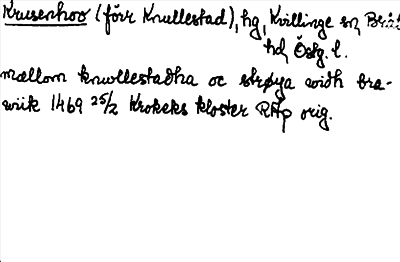 Krusenhov (förr Knullestad), hg, Kvillinge sn, Brå:s
hd, Östg. l.
mællom knwllestadha oc strøya widh bra-
wiik 1469 25/2 Krokeks kloster RAp orig.